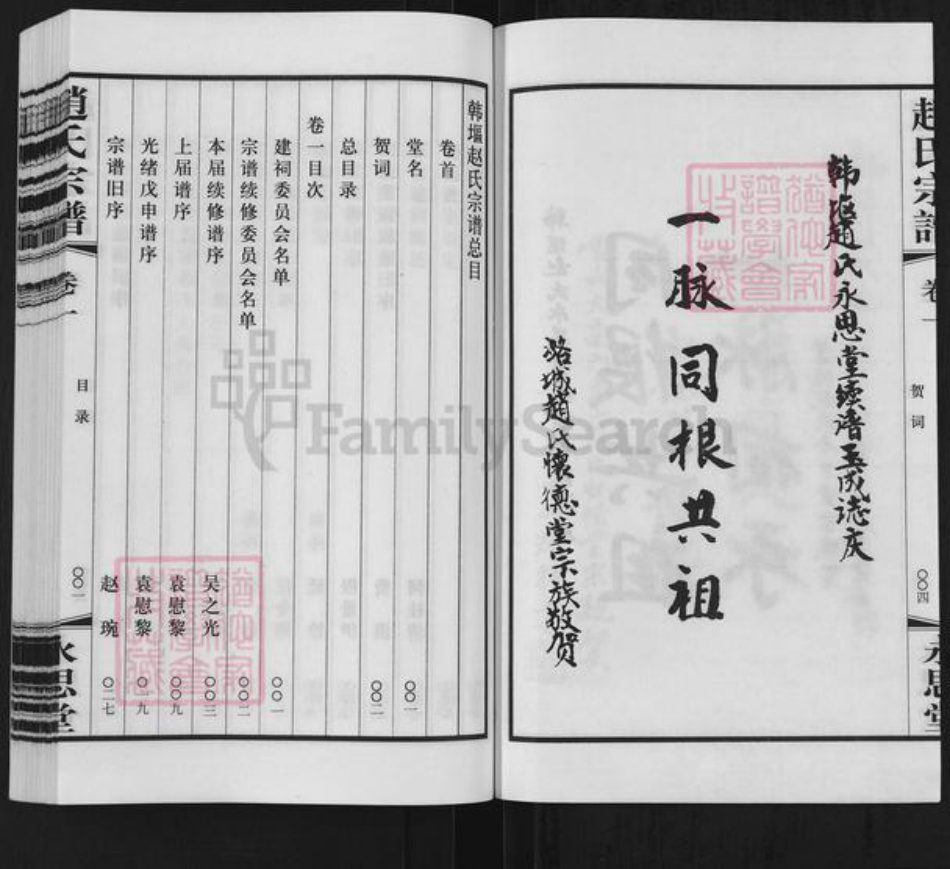 趙氏宗譜
卷一
贺词
〇〇四
永思堂
韩堰趙氏永思堂续谱玉成誌庆
一脉同根共祖
潞城趙氏懷德堂宗族敬贺
韩堰赵氏宗谱总目
卷首
堂名 〇〇一
贺词 〇〇二
总目录
卷一目次
建祠委员会名单 〇〇一
宗谱续修委员会名单 〇〇二
本届续修谱序 吴之光 〇〇三
上届谱序 袁慰黎 〇〇九
光绪戊申谱序 袁慰黎 〇一九
宗谱旧序 赵琬 〇二七
趙氏宗譜
卷一
目录
〇〇一
永思堂
FamilySearch